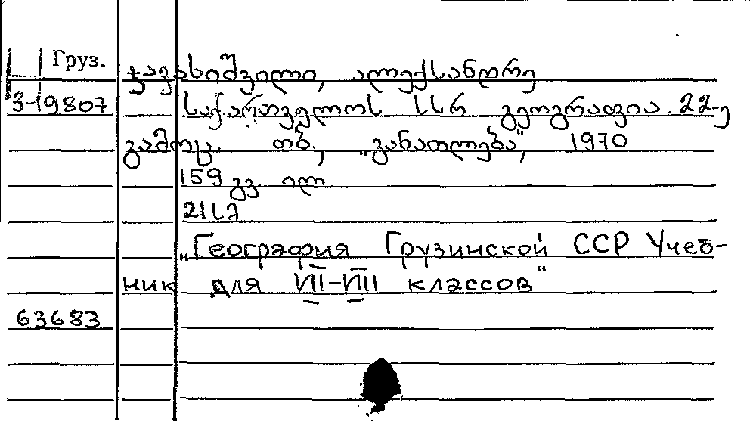 Груз.
ჯავახიშვილი, ალექსანდრე
3-19807 საქართველოს სსრ გეოგრაფია. 22-ე
გამოც. თბ., „განათლება“, 1970
159 გვ. ილ.
"География Грузинской ССР Учеб-
ник для VII-VIII классов"
63683